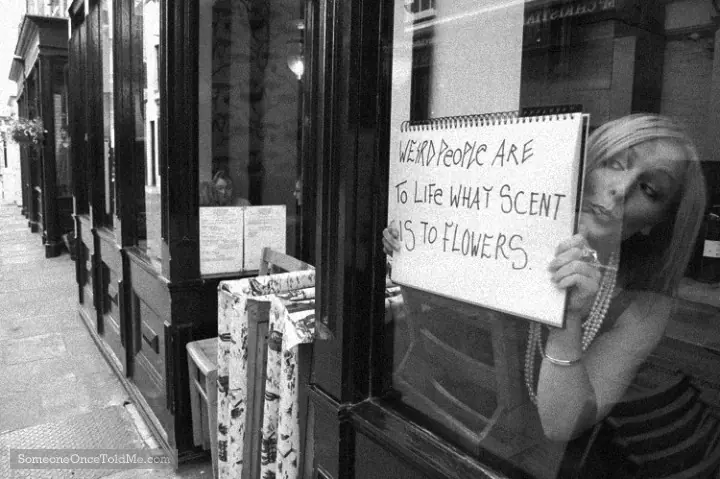 WEIRD PEOPLE ARE
TO LIFE WHAT SCENT
IS TO FLOWERS.
SomeoneOnceToldMe.com